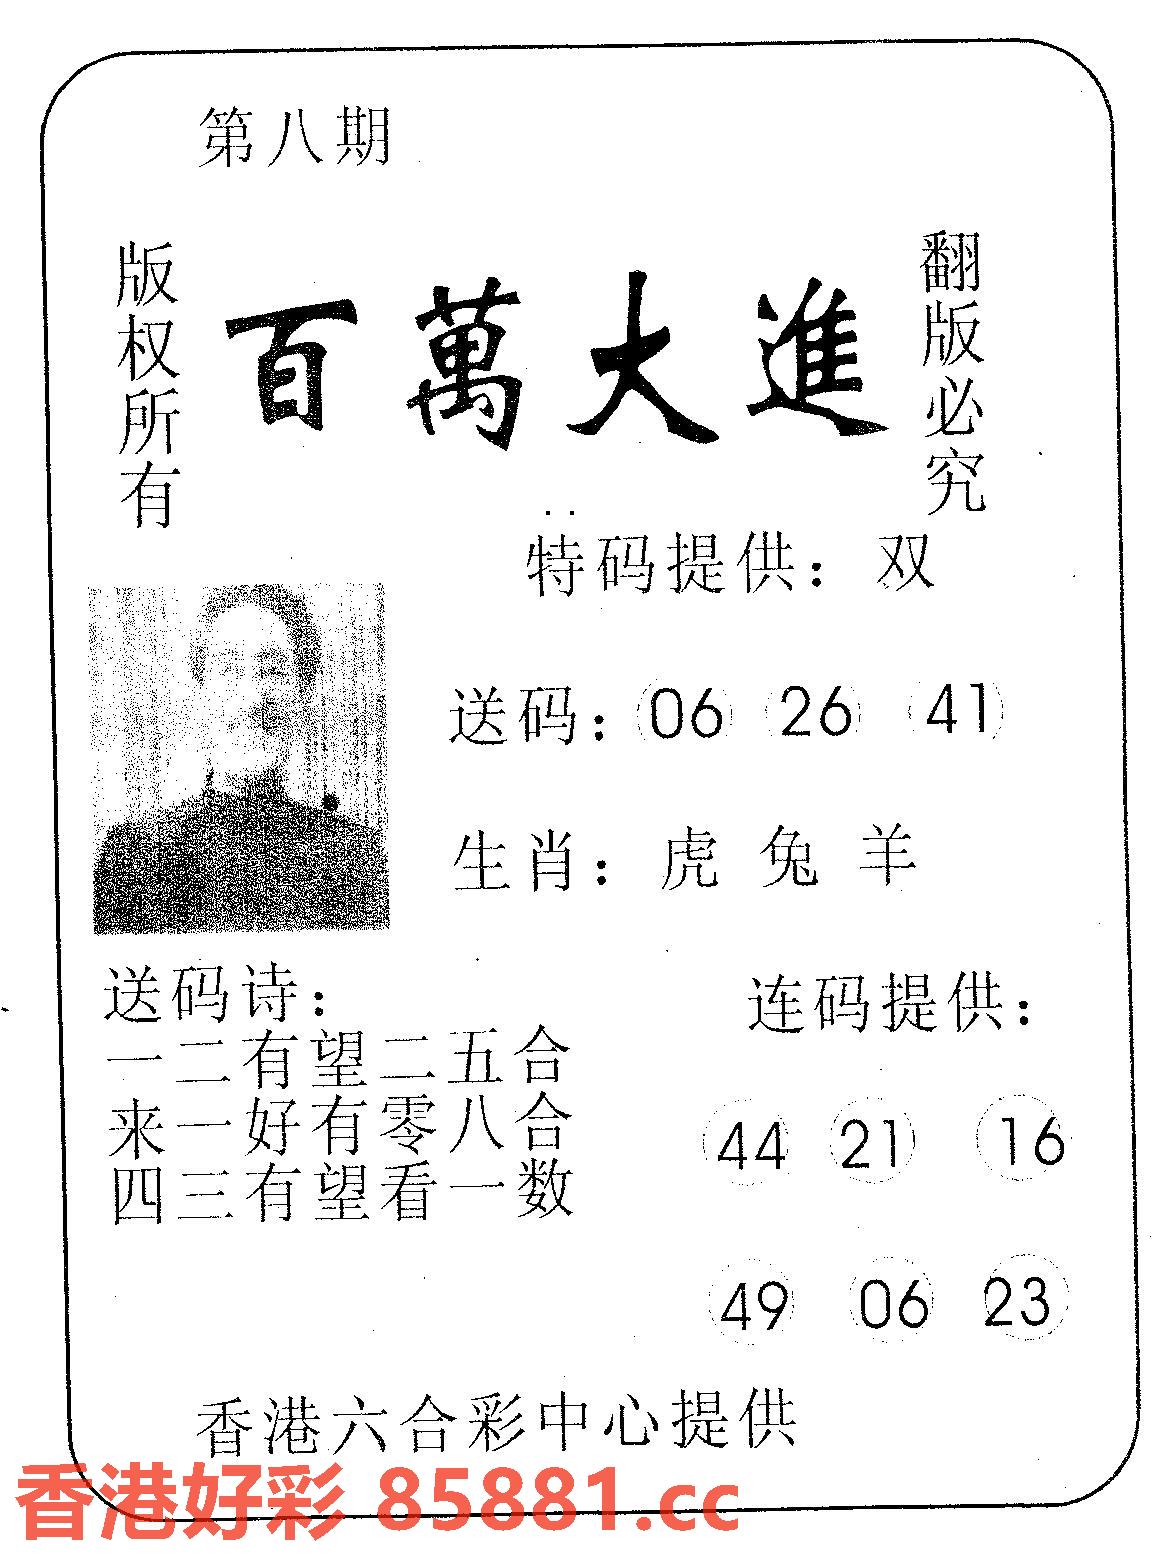 第八期
版权所有
百萬大進
翻版必究
特码提供：双
送码：06 26 41
生肖：虎 兔 羊
送码诗：
一二有望二五合
来一好有零八合
四三有望看一数
连码提供：
44 21 16
49 06 23
香港六合彩中心提供
香港好彩 85881.cc